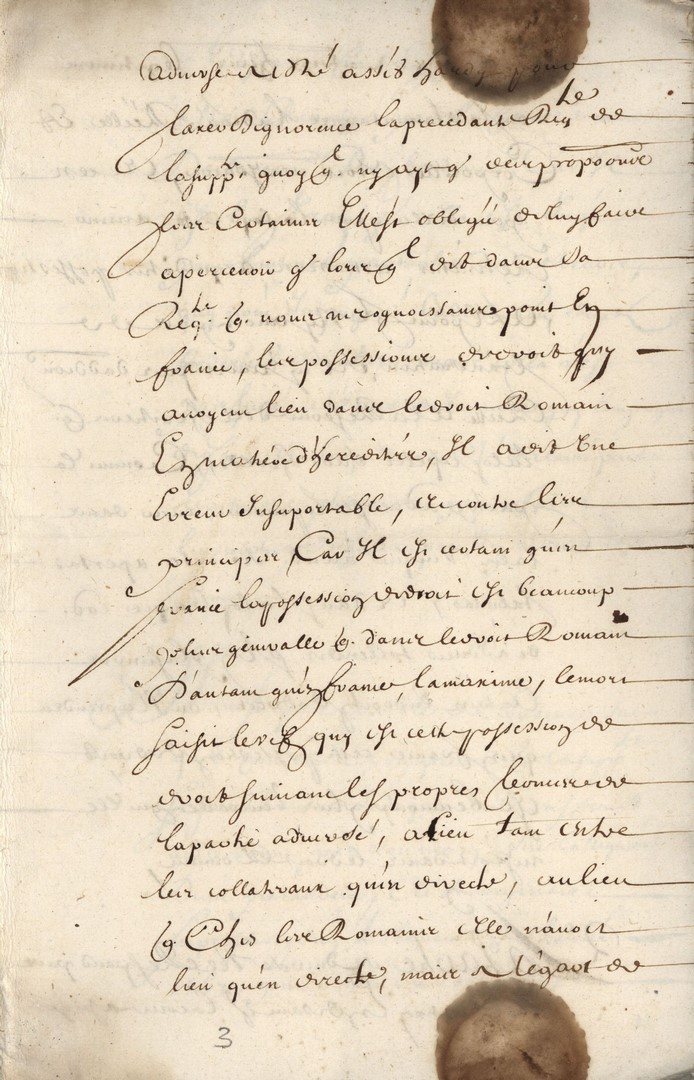 adverse a esté assés hardy pour
taxer d'ignorence la precedante Reqte de
la suppte quoy q. ny ayt q des propoons
fort Certaines Ell'est obligé de luy faire
apercevoir q lors ql dit dans sa
Reqte q. nous ne cognoissons point En
france, les possessions de droit quy
avoyent lieu dans le droit Romain
En matiere d'hereditéz, Il a dit Une
Erreur Insuportable, et contre les
principes Car Il est certain qu'en
france la possession de droit est beaucoup
plus generalle q. dans le droit Romain
D'autant qu'en france, la maxime, le mort
saisit le vif quy est cette possession de
droit suivant les propres termes de
la partie adverse, a lieu tant entre
les collateraux qu'en directe, au lieu
q. Ches les Romains elle n'avoit
lieu qu'en directe, mais a l'égard de
3